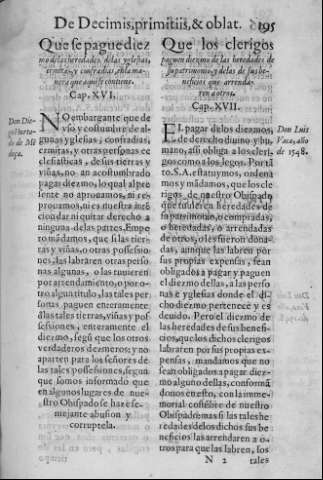 De Decimis, primitiis, & oblat. 195
Que se pague diez
mo de las heredades, de las yglesias,
ermitas, y confradias, en la ma-
nera que aqui se contiene.
Cap. XVI.
Don Die-
go Hurta-
do de Mẽ
doça.
NO embargante que de
vso y costumbre de al-
gunas yglesias, confradias,
ermitas, y otras personas ec
clesiasticas, de sus tierras y
viñas, no an acostumbrado
pagar diezmo, lo qual al pre
sente no aprouamos, ni re-
prouamos, ni es nuestra intẽ
cion dar ni quitar derecho a
ninguna de las partes. Empe
ro mãdamos, que si las tier-
ras y viñas, o otras possesio-
nes, las labraren otras perso
nas algunas, o las tuuieren
por arrendamiento, o por o-
tro algun titulo, las tales per
sonas paguen enteramente
d̃ las tales tierras, viñas y pos
sessiones, enteramente el
diezmo, segũ que los otros
verdaderos dezmeros: y no
aparten para los señores de
las tales possessiones, segun
que somos informado que
en algunos lugares de nue-
stro Obispado se haze se-
mejante abusion y
corruptela.
Que los clerigos
paguen diezmo de las heredades de
su patrimonio, y de las de sus be-
neficios que arrenda-
ren a otros.
Cap. XVII.
Don Luis
Vaca, año
de 1548.
EL pagar de los diezmos,
es de derecho diuino y hu
mano, assi obliga a los cleri-
gos como a los legos. Por tã
to. S. A. estatuymos, ordena
mos y mãdamos, que los cle
rigos de nuestro Obispado
que tuuieren heredades de
su patrimonio, o compradas,
o heredadas, o arrendadas
de otros, o les fueron dona-
das, aunque las labren por
sus propias expensas, sean
obligados a pagar y paguen
el diezmo dellas, a las perso
nas e yglesias donde el di-
cho diezmo pertenece y es
deuido. Pero el diezmo de
las heredades de sus benefi-
cios, que los dichos clerigos
labraren por sus propias ex-
pensas, mandamos que no
sean obligados a pagar diez-
mo alguno dellas, conformã
donos en esto, con la imme-
morial costũbre de nuestro
Obispado: mas si las tales he
redades de los dichos sus be
neficios las arrendaren a o-
tros para que las labren, los
N 2 tales